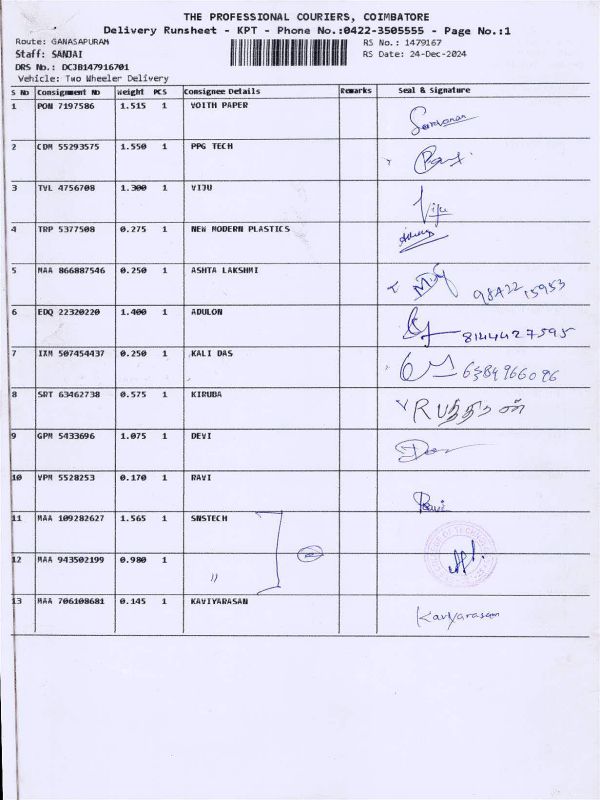 THE PROFESSIONAL COURIERS, COIMBATORE
Delivery Runsheet - KPT - Phone No.:0422-3505555 - Page No.:1
Route: GANASAPURAM RS No.: 1479167
Staff: SANJAI RS Date: 24-Dec-2024
DRS No.: DC3B147916701
Vehicle: Two Wheeler Delivery
S No Consignment No Weight PCS Consignee Details Remarks Seal & Signature
1 PON 7197586 1.515 1 VOITH PAPER
2 CDM 55293575 1.550 1 PPG TECH
3 TVL 4756708 1.300 1 VIJU Viju
4 TRP 5377508 0.275 1 NEW MODERN PLASTICS
5 MAA 866887546 0.250 1 ASHTA LAKSHMI 98422 15953
6 EDQ 22320220 1.400 1 ADULON 8144427595
7 IXM 507454437 0.250 1 KALI DAS 6384966096
8 SRT 63462738 0.575 1 KIRUBA
9 GPM 5433696 1.075 1 DEVI
10 VPM 5528253 0.170 1 RAVI Ravi
11 MAA 109282627 1.565 1 SNSTECH
12 MAA 943502199 0.980 1 "
13 MAA 706108681 0.145 1 KAVIYARASAN Kaviyarasan